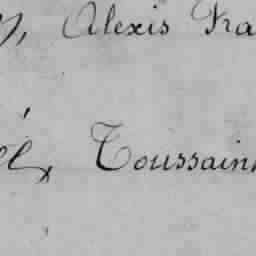 Alexis Fra
Toussain